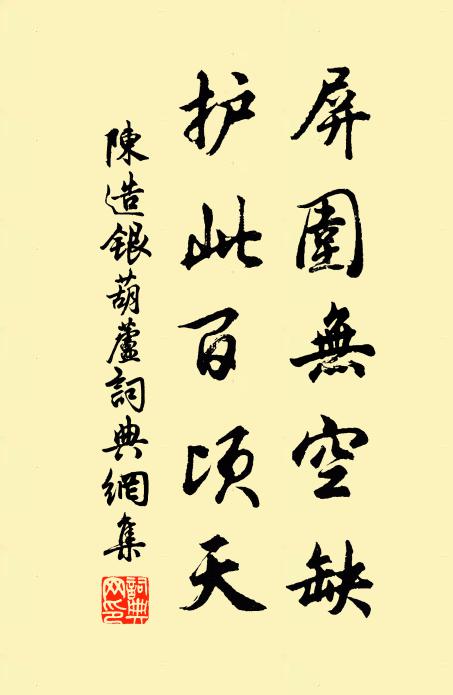 屏圍無空缺
护此百頃天
陳造銀葫蘆詞典網集
詞典網印